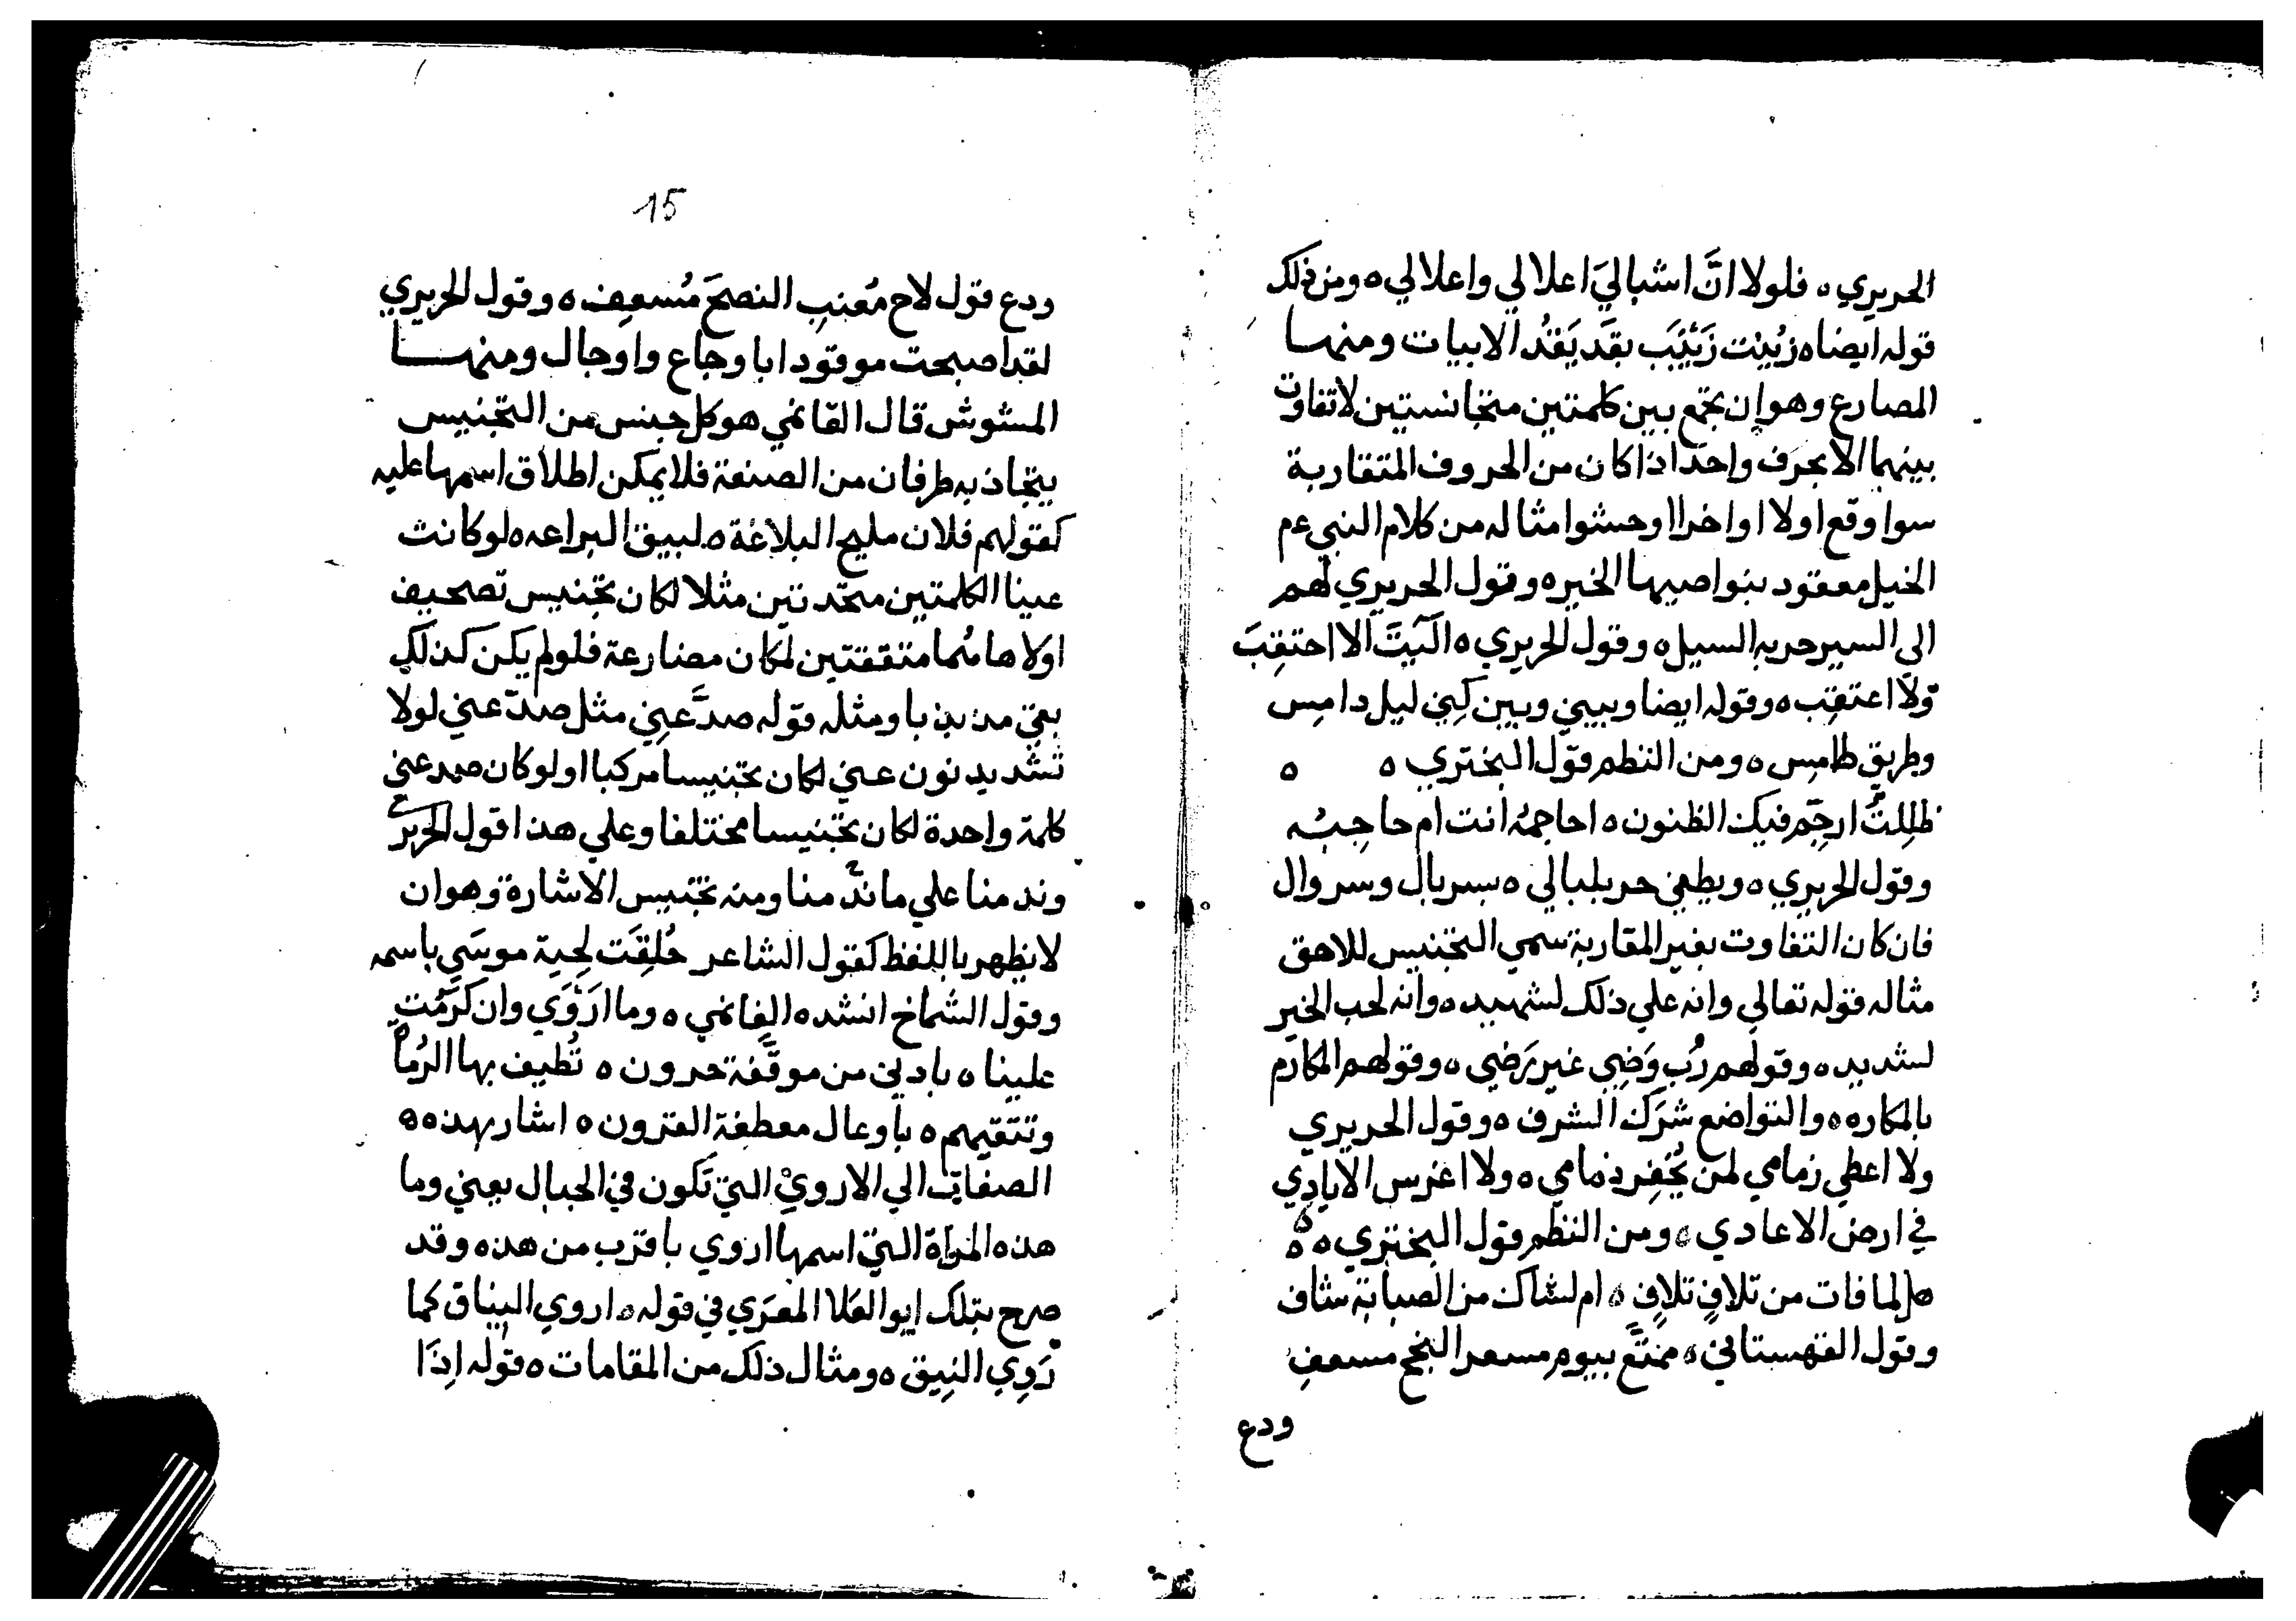 الحريري ه فلولا انَّ اشباليَ اعلالي واعلالي ه ومن ذلك
قوله ايضا ه زُيّنت زَيْنَب بقَد يَقُدُّ الابيات ومنها
المضارع وهو ان يجمع بين كلمتين متجانستين لا تفاوت
بينهما الا بحرف واحد اذا كان من الحروف المتقاربة
سوا وقع اولا او اخرا او حشوا مثاله من كلام النبي عم
الخيل معقود بنواصيها الخير ه وقول الحريري لهم
الي السير جريه السيل ه وقول الحريري ه آليت الا احتقب
ولا اعتقب ه وقوله ايضا وبيني وبين كِنِي ليل دامس
وطريق طامس ه ومن النظم قول البختري ه ه
ظلِلتُ ارجّم فيك الظنون ه احاجمُهُ انت ام حاجبُه
وقول الحريري ه ويطفي حر بلبالي ه بسربال وسروال
فان كان التفاوت بغير المقاربة سمي التجنيس للاحق
مثاله قوله تعالي وانه علي ذلك لشهيد ه وانه لحب الخير
لشديد ه وقولهم رُب وَضِي غير رَضي ه وقولهم المكارم
بالمكاره ه والتواضع شَرَك الشرف ه وقول الحريري
ولا اعطي زمامي لمن يُخفِر ذمامي ه ولا اغرس الايادي
في ارض الاعادي ه ومن النظم قول البختري ه ه
هل لما فات من تلاقٍ تلافٍ ه ام لشاك من الصبابة شاف
وقول القهستاني ه ممتَّع بيوم مسعر النجح مسعف
ودع
15
ودع قول لاح مُعنِبِ النصحَ مُسعِف ه وقول الحريري
لقد اصبحت موقودا باوجاع واوجال ومنها
المشوش قال الغانمي هو كل جنس من التجنيس
يتجاذبه طرفان من الصنعة فلا يمكن اطلاق اسمها عليه
كقولهم فلان مليح البلاغة ه لبيق البراعه ه لو كانت
عينا الكلمتين متحدتين مثلا لكان تجنيس تصحيف
اولاهما متفقتين لكان مضارعة فلو لم يكن كذلك
بقي مذبذبا ومثله قوله صدَّ عِنِي مثل صدّ عني لولا
تشديد نون عني لكان تجنيسا مركبا او لو كان صدعني
كلمة واحدة لكان تجنيسا مختلفا وعلي هذا قول الحريري
وندمنا علي ما ندّ منا ومنه تجنيس الاشارة وهو ان
لا يظهر باللفظ كقول الشاعر حُلِقَت لِحية موسَي باسمه
وقول الشماخ انشده الغانمي ه وما ارْوَي وان كَرُمَتِ
علينا ه بادني من موقَّفة حرون ه تُطيف بها الرُماة
وتتقيهم ه باوعال معطفة القرون ه اشار بهذه ه
الصفات الي الاروي التي تكون في الجبال يعني وما
هذه المراة التي اسمها اروي باقرب من هذه وقد
صرح بتلك ابو العلا المعرَي في قوله ه اروي النياق كما
رَدِي النِيق ه ومثال ذلك من المقامات ه قوله اِذَا